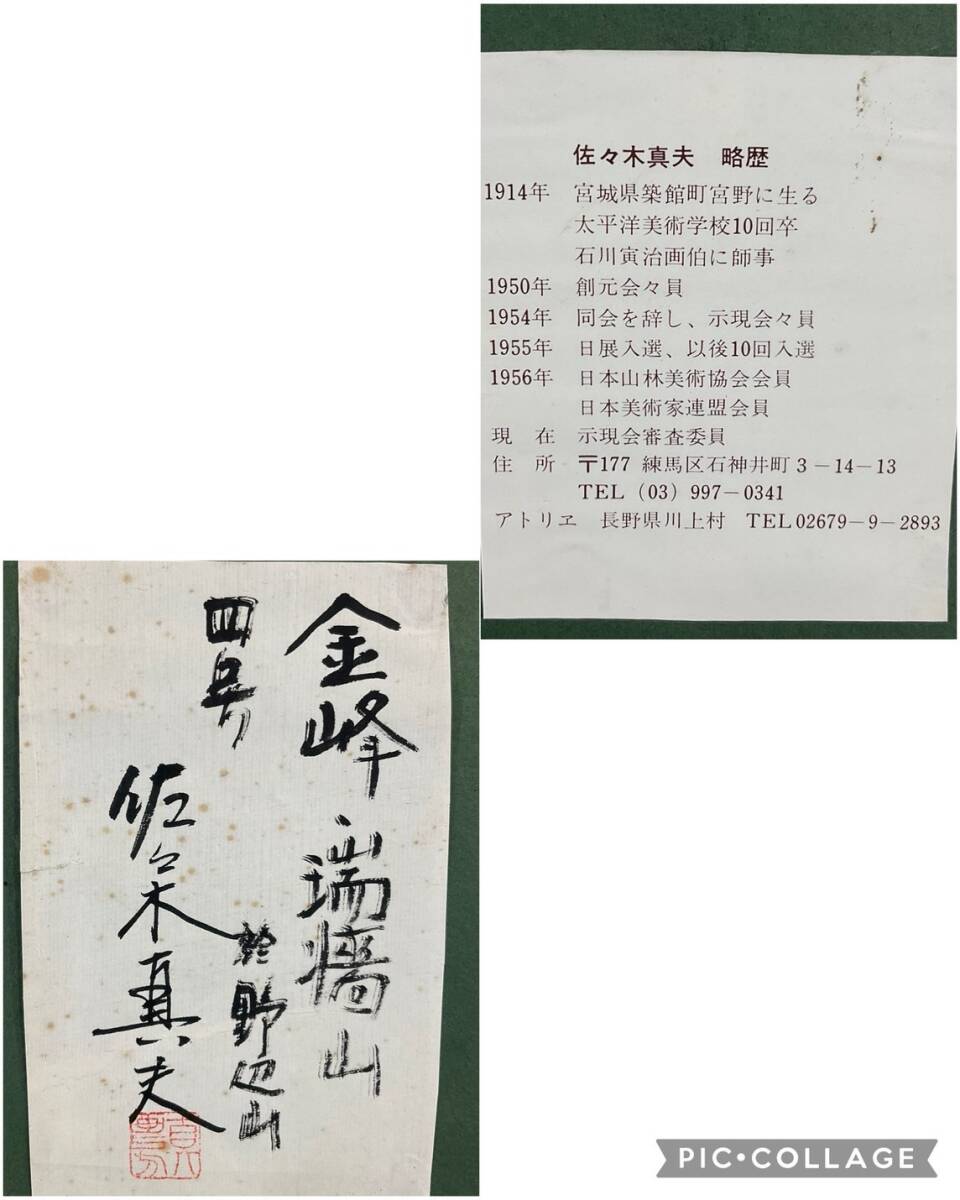 佐々木真夫 略歴
1914年 宮城県築館町宮野に生る
太平洋美術学校10回卒
石川寅治画伯に師事
1950年 創元会々員
1954年 同会を辞し、示現会々員
1955年 日展入選、以後10回入選
1956年 日本山林美術協会会員
日本美術家連盟会員
現 在 示現会審査委員
住 所 〒177 練馬区石神井町3-14-13
TEL (03) 997-0341
アトリヱ 長野県川上村 TEL02679-9-2893
金峰、瑞牆山
於野辺山
四号
佐々木真夫
PIC•COLLAGE